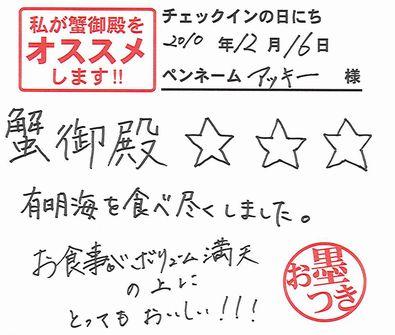 私が蟹御殿を
オススメ
します!!
チェックインの日にち
2010 年 12 月 16 日
ペンネーム アッキー 様
蟹御殿 ☆ ☆ ☆
有明海を食べ尽くしました。
お食事がボリューム満天
の上に
とってもおいしい!!!
お墨つき